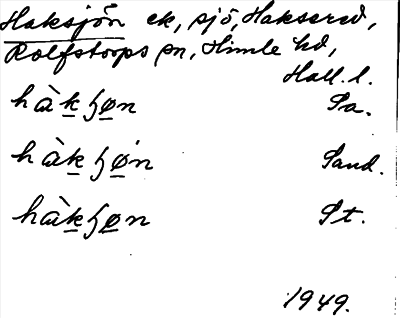 Haksjön ek, sjö, Haksered,
Rolfstorps sn, Himle hd,
Hall. l.
hàkʃøn Sa.
hàkʃøn Sand.
hàkʃøn St.
1949.